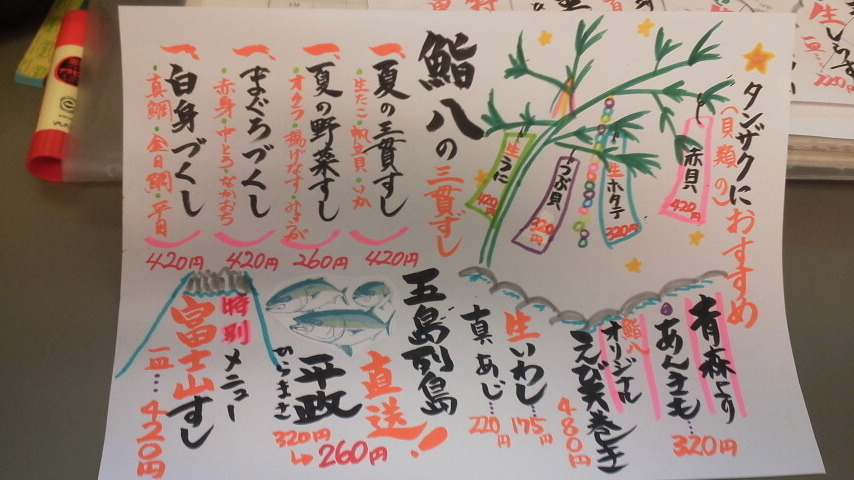 タンザクにおすすめ
(貝類の)
赤貝
420円
生ホタテ
320円
つぶ貝
320円
生うに
420円
鮨八の三貫ずし
一、夏の三貫すし
生たこ・帆立貝・いか
420円
一、夏の野菜すし
オクラ・揚げなす・みょうが
260円
一、まぐろづくし
赤身・中とろ・なかおち
420円
一、白身づくし
真鯛・金目鯛・平目
420円
青森より
あんきも…
320円
鮨八
オリジナル
えび天巻き
480円
生いわし…
175円
真あじ…
220円
五島列島
直送!
平政
ひらまさ
320円
↳260円
特別メニュー
富士山すし
一皿…420円
生しらす
220円